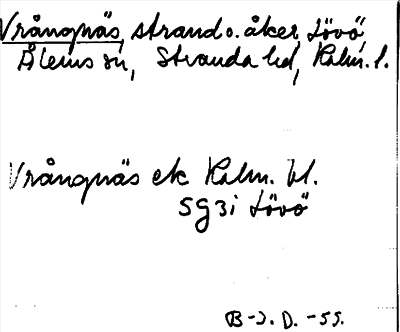 Vrångnäs, strand o. åker, Lövö,
Ålems sn, Stranda hd, Kalm. l.
Vrångnäs ek Kalm. bl.
5G3i Lövö
B-J. D. -55.